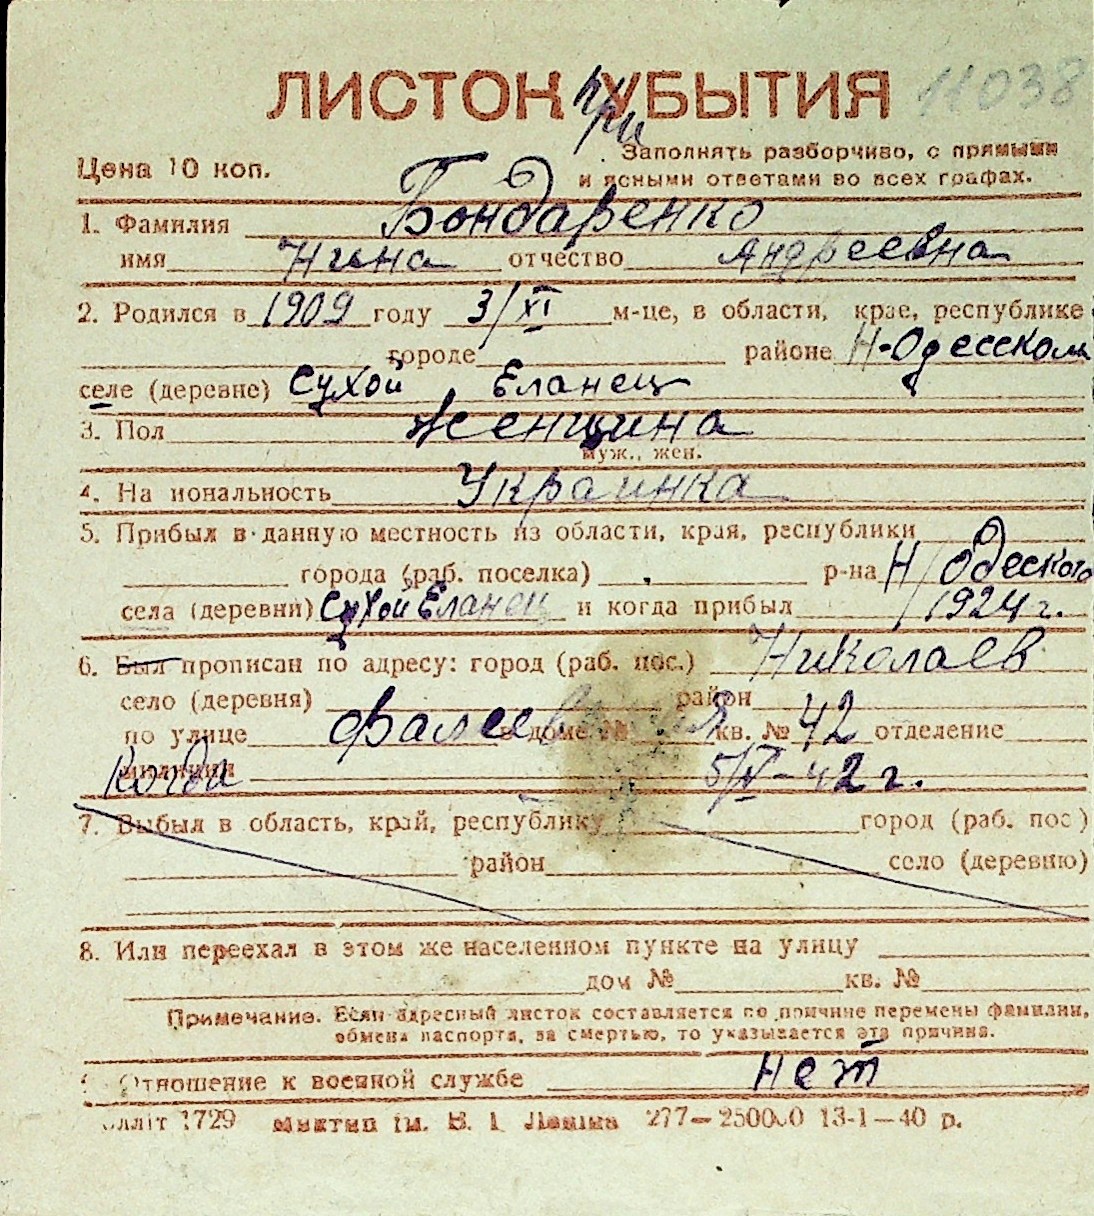 ЛИСТОК при УБЫТИЯ 11038
Цена 10 коп.
Заполнять разборчиво, с прямыми
и ясными ответами во всех графах.
1. Фамилия Бондаренко
имя Нина отчество Андреевна
2. Родился в 1909 году 3/XI м-це, в области, крае, республике
городе районе Н-Одесском
селе (деревне) Сухой Еланец
3. Пол женщина
муж., жен.
4. На иональность Украинка
5. Прибыл в данную местность из области, края, республики
города (раб. поселка) р-на Н/Одеского
села (деревни) Сухой Еланец и когда прибыл 1924 г.
6. Был прописан по адресу: город (раб. пос.) Николаев
село (деревня) район
по улице в доме № кв. № 42 отделение
милиции Когда 5/IV-42 г.
7. Выбыл в область, край, республику город (раб. пос)
район село (деревню)
8. Или переехал в этом же населенном пункте на улицу
дом № кв. №
Примечание. Если адресный листок составляется по причине перемены фамилии,
обмена паспорта, за смертью, то указывается эта причина.
Отношение к военной службе Нет
1729 ім. В. І. Леніна 277—250000 13-1—40 р.